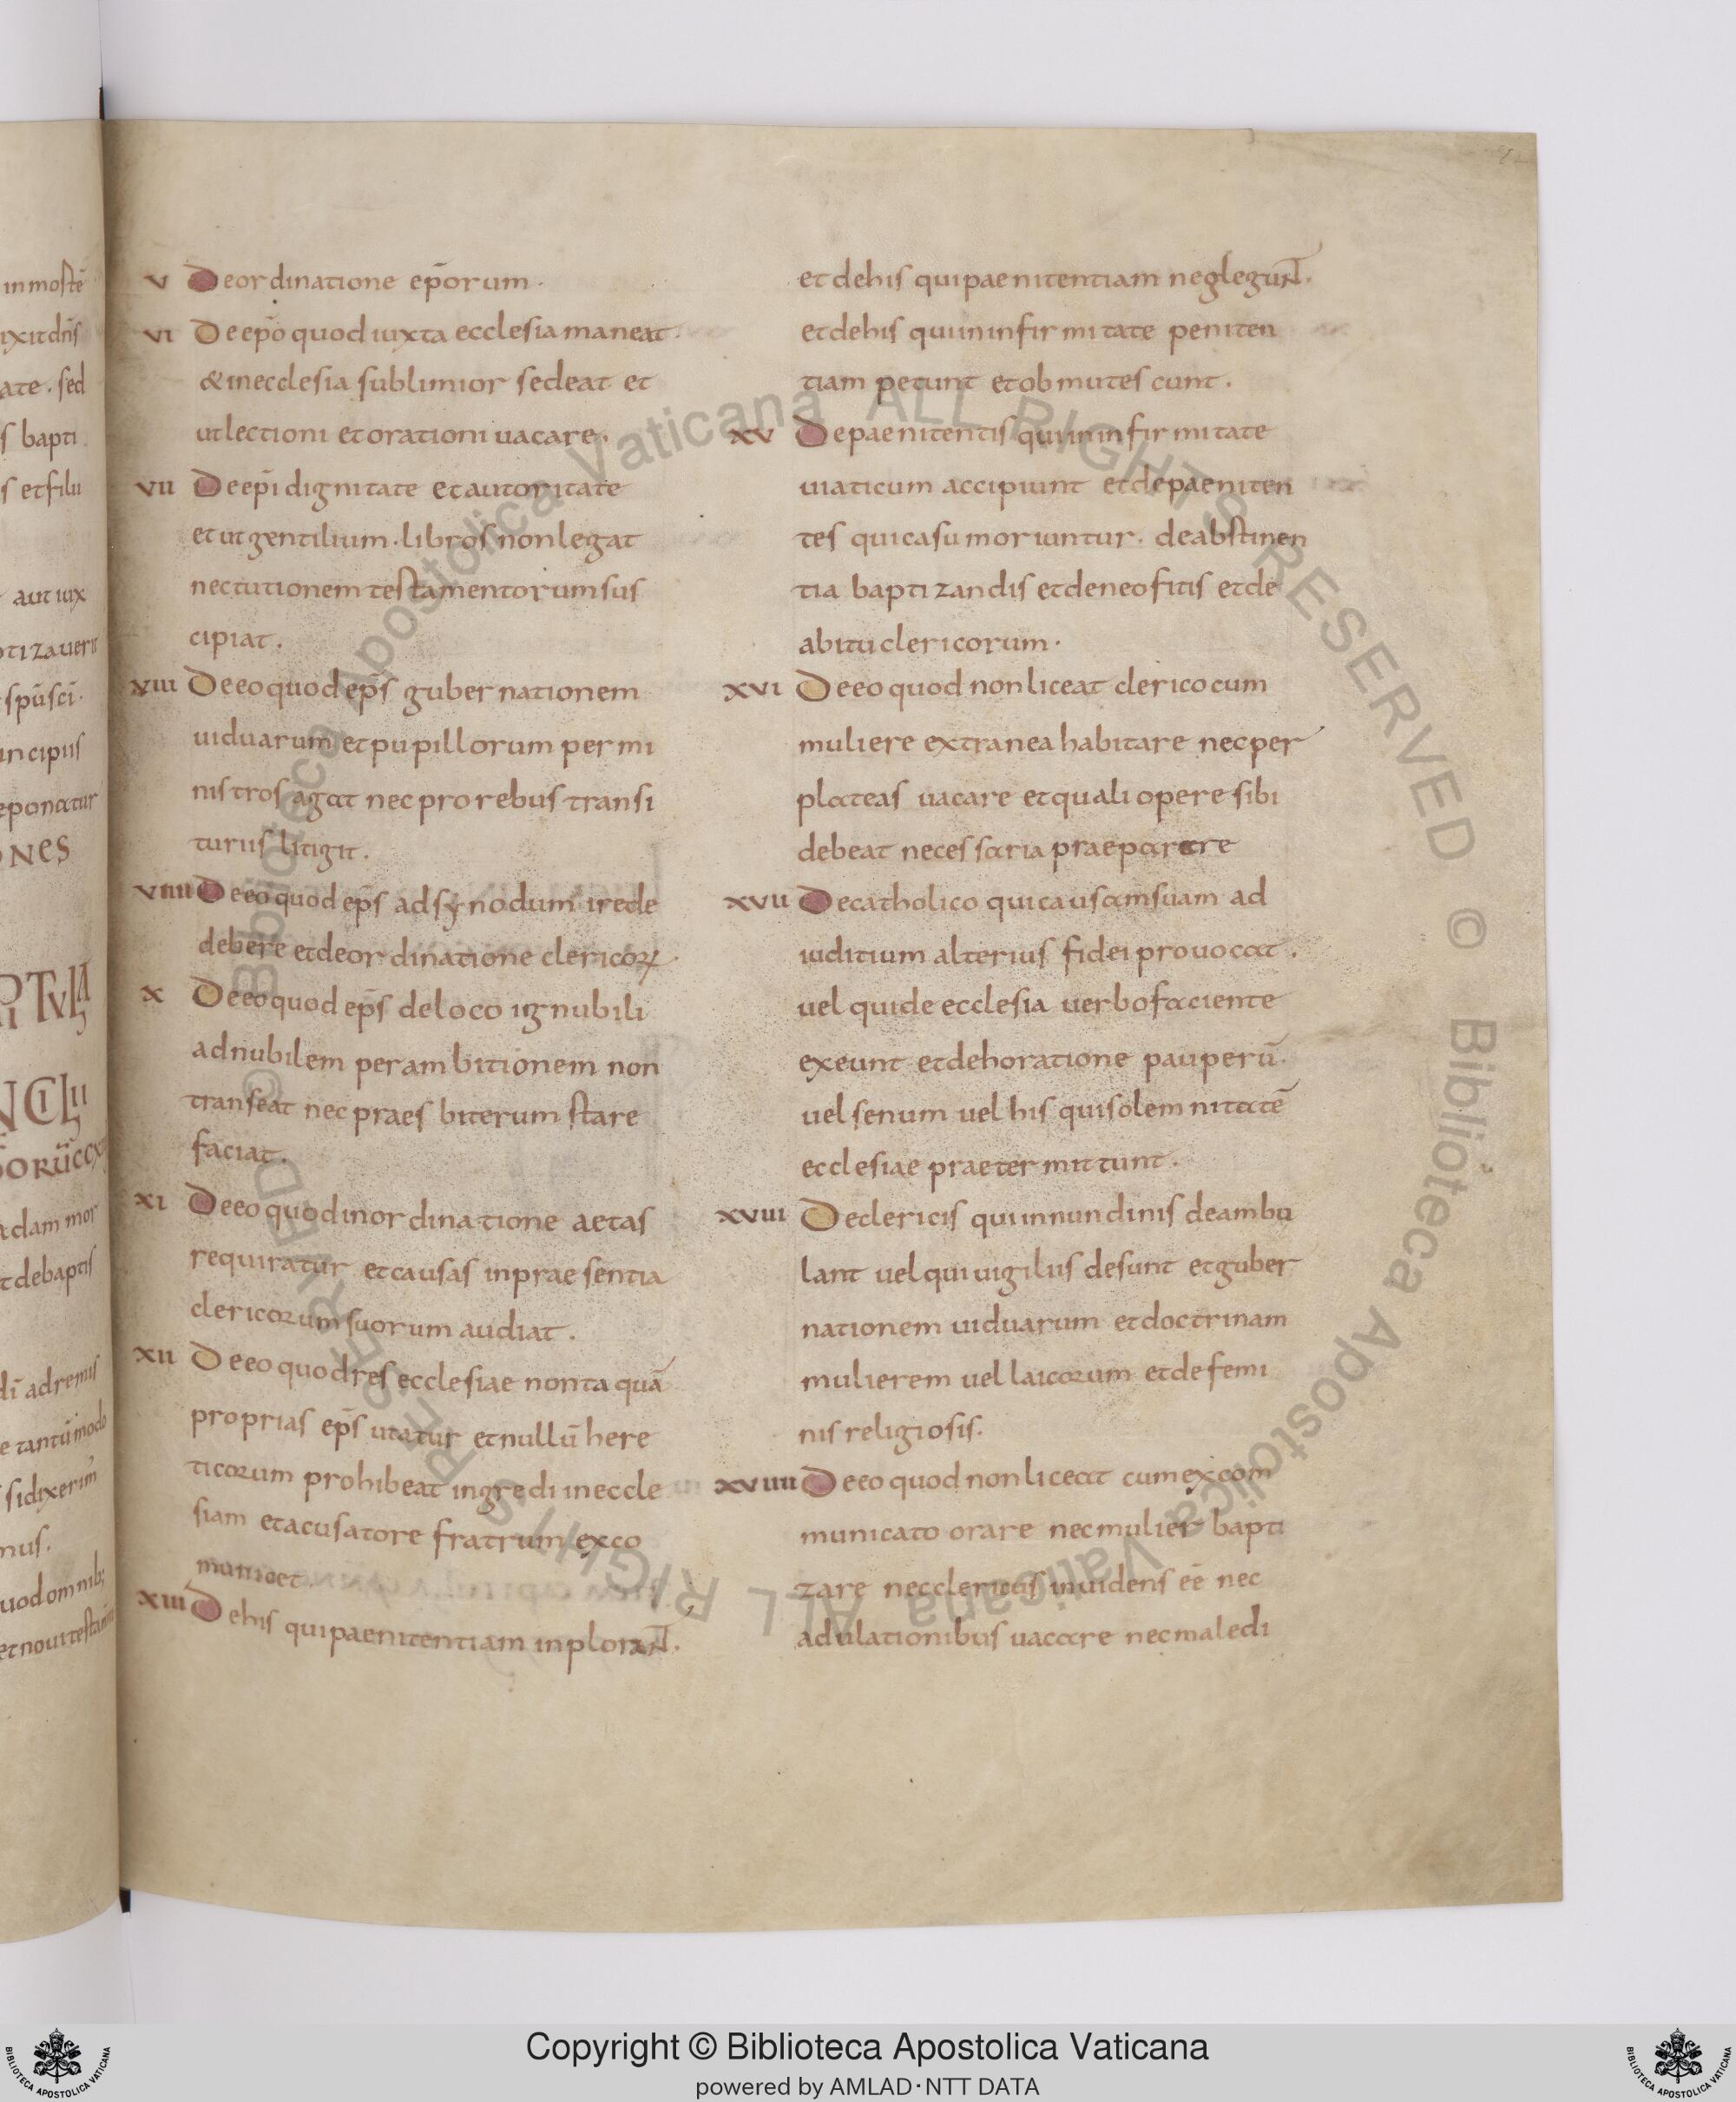 v Deordinatione ep̄orum.
vi Deep̄o quod iuxta ecclesia maneat.
& inecclesia sublimior sedeat et
ut lectioni et orationi uacare.
vii Deep̄i dignitate et autoritate
et ut gentilium. libros non legat
nec tutionem testamentorum sus
cipiat.
xiii De eo quod ep̄s gubernationem
uiduarum et pupillorum per mi
nistros agat nec pro rebus transi
turiis litigit.
viiii De eo quod ep̄s ad synodum irede
debere et de ordinatione clericoꝝ.
x De eo quod ep̄s de loco ignubili
ad nubilem per ambitionem non
transeat nec praesbiterum stare
faciat.
xi De eo quod in ordinatione aetas
requiratur et causas in praesentia
clericorum suorum audiat.
xii De eo quod res ecclesiae non ta quā
proprias ep̄s utatur et nullū here
ticorum prohibeat ingredi in eccle
siam et acusatore fratrum exco
municet.
xiii De his qui paenitentiam inplorant.
et de his qui paenitentiam neglegunt.
et de his qui in infirmitate peniten
tiam petunt et obmutescunt.
xv De paenitentis qui in infirmitate
uiaticum accipiunt et de paeniten
tes qui casu moriuntur. de abstinen
tia baptizandis et de neofitis et de
abitu clericorum.
xvi De eo quod non liceat clerico cum
muliere extranea habitare nec per
plateas uacare et quali opere sibi
debeat necessaria praeparare
xvii De catholico qui causam suam ad
iuditium alterius fidei prouocat.
uel qui de ecclesia uerbo faciente
exeunt et de horatione pauperū.
uel senum uel his qui solemnitatē
ecclesiae praetermittunt.
xviii De clericis qui in nundinis deambu
lant uel qui uigiliis desunt et guber
nationem uiduarum et doctrinam
mulierem uel laicorum et de femi
nis religiosis.
xviiii De eo quod non liceat cum excom
municato orare nec mulier bapti
zare nec clericus inuidens eē nec
adulationibus uacare nec maledi
Copyright © Biblioteca Apostolica Vaticana
powered by AMLAD·NTT DATA